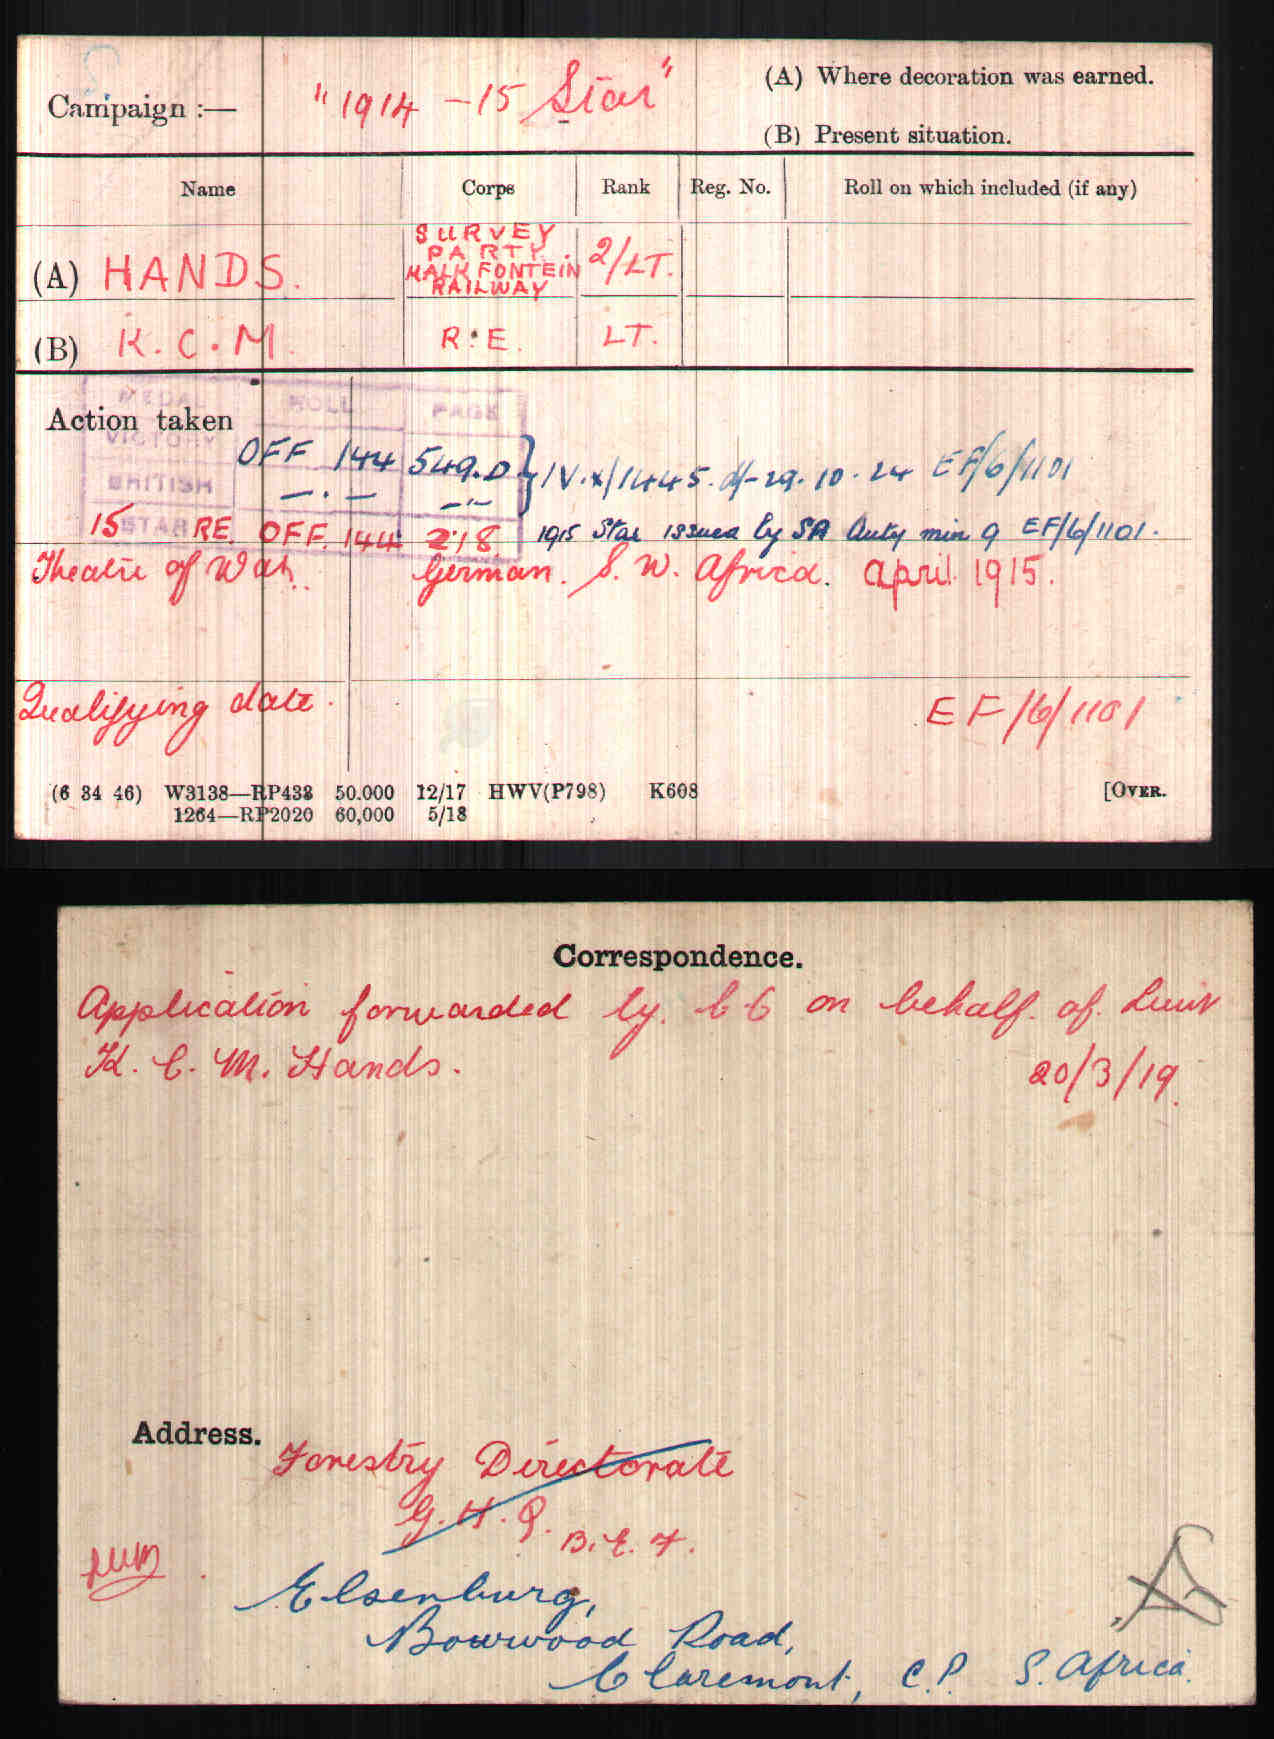 Campaign :— "1914 – 15 Star"
(A) Where decoration was earned.
(B) Present situation.
Name Corps Rank Reg. No. Roll on which included (if any)
(A) HANDS. SURVEY PARTY. KALKFONTEIN RAILWAY 2/LT.
(B) K.C.M. R.E. LT.
Action taken
MEDAL ROLL PAGE
VICTORY OFF 144 549.D } IV.X/1445. d/-29.10.24 EF/6/1101
BRITISH —.— —"—
15 STAR RE. OFF. 144 218 1915 Star issued by SA Auty min 9 EF/6/1101.
Theatre of War. German. S. W. Africa. April 1915.
Qualifying date. EF/6/1101
(6 34 46) W3138—RP438 50.000 12/17 HWV(P798) K608 [OVER.
1264—RP2020 60,000 5/18
Correspondence.
Application forwarded by. on behalf. of. Lieut
K. C. M. Hands. 20/3/19.
Address.
Forestry Directorate
G.H.Q. B.E.F.
Elsenburg,
Bowwood Road,
Claremont, C.P. S. Africa.